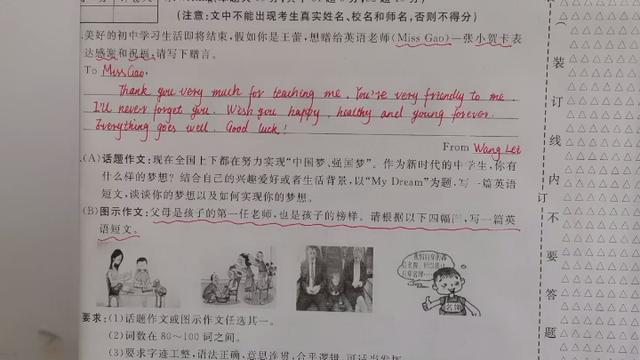 (注意:文中不能出现考生真实姓名、校名和师名,否则不得分)
美好的初中学习生活即将结束,假如你是王蕾,想赠给英语老师(Miss Gao)一张小贺卡表
达感谢和祝福,请写下赠言。
To Miss Gao,
Thank you very much for teaching me. You're very friendly to me.
I'll never forget you. Wish you happy, healthy and young forever.
Everything goes well. Good luck!
From Wang Lei
(A)话题作文:现在全国上下都在努力实现“中国梦、强国梦”。作为新时代的中学生,你有
什么样的梦想?结合自己的兴趣爱好或者生活背景,以“My Dream”为题,写一篇英语
短文,谈谈你的梦想以及如何实现你的梦想。
(B)图示作文:父母是孩子的第一任老师,也是孩子的榜样。请根据以下四幅图,写一篇英
语短文。
要求:(1)话题作文或图示作文任选其一。
(2)词数在80~100词之间。
(3)要求字迹工整,语法正确,意思连贯,合乎逻辑,可适当发挥
装订线内不要答题